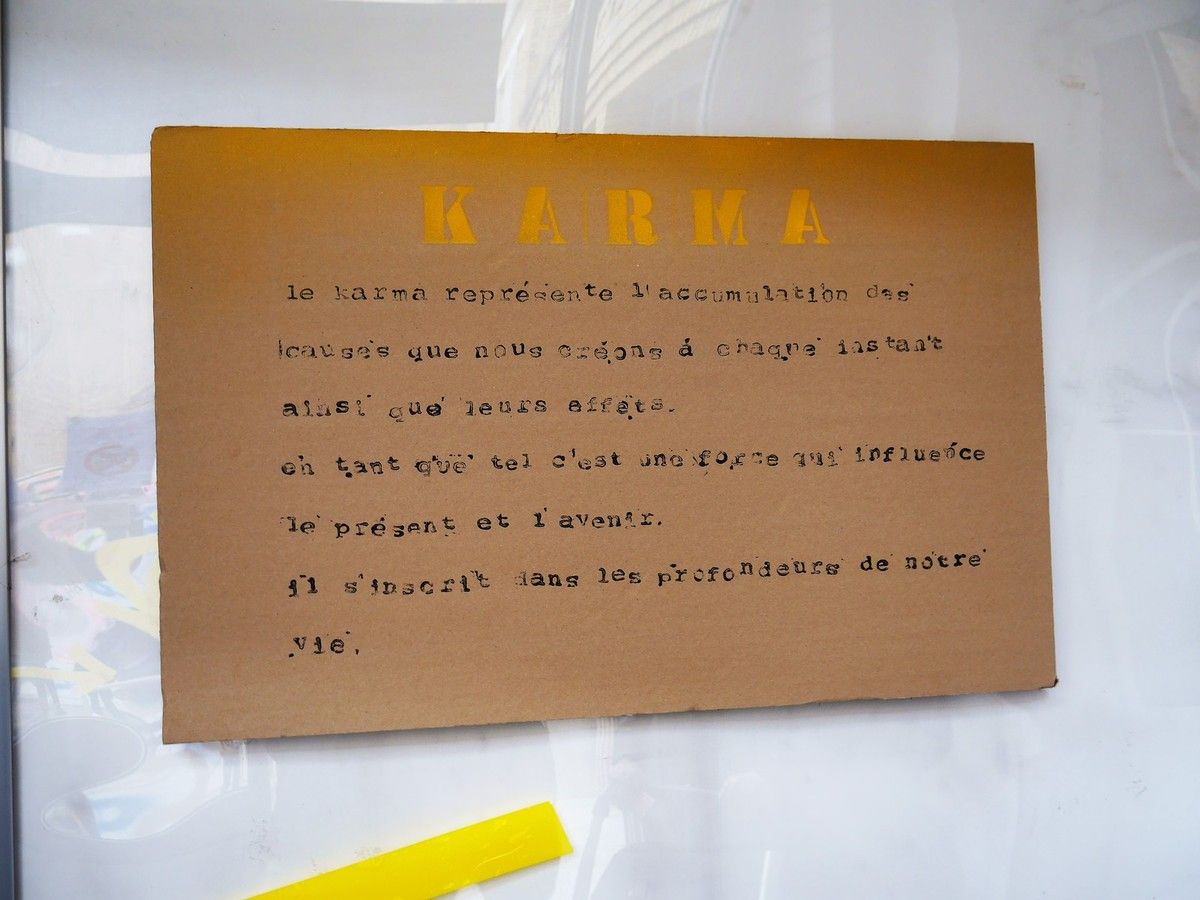 KARMA
le karma représente l'accumulation des
causes que nous créons á chaque instant
ainsi que leurs effets.
en tant que tel c'est une force qui influence
le présent et l'avenir.
il s'inscrit dans les profondeurs de notre
vie.